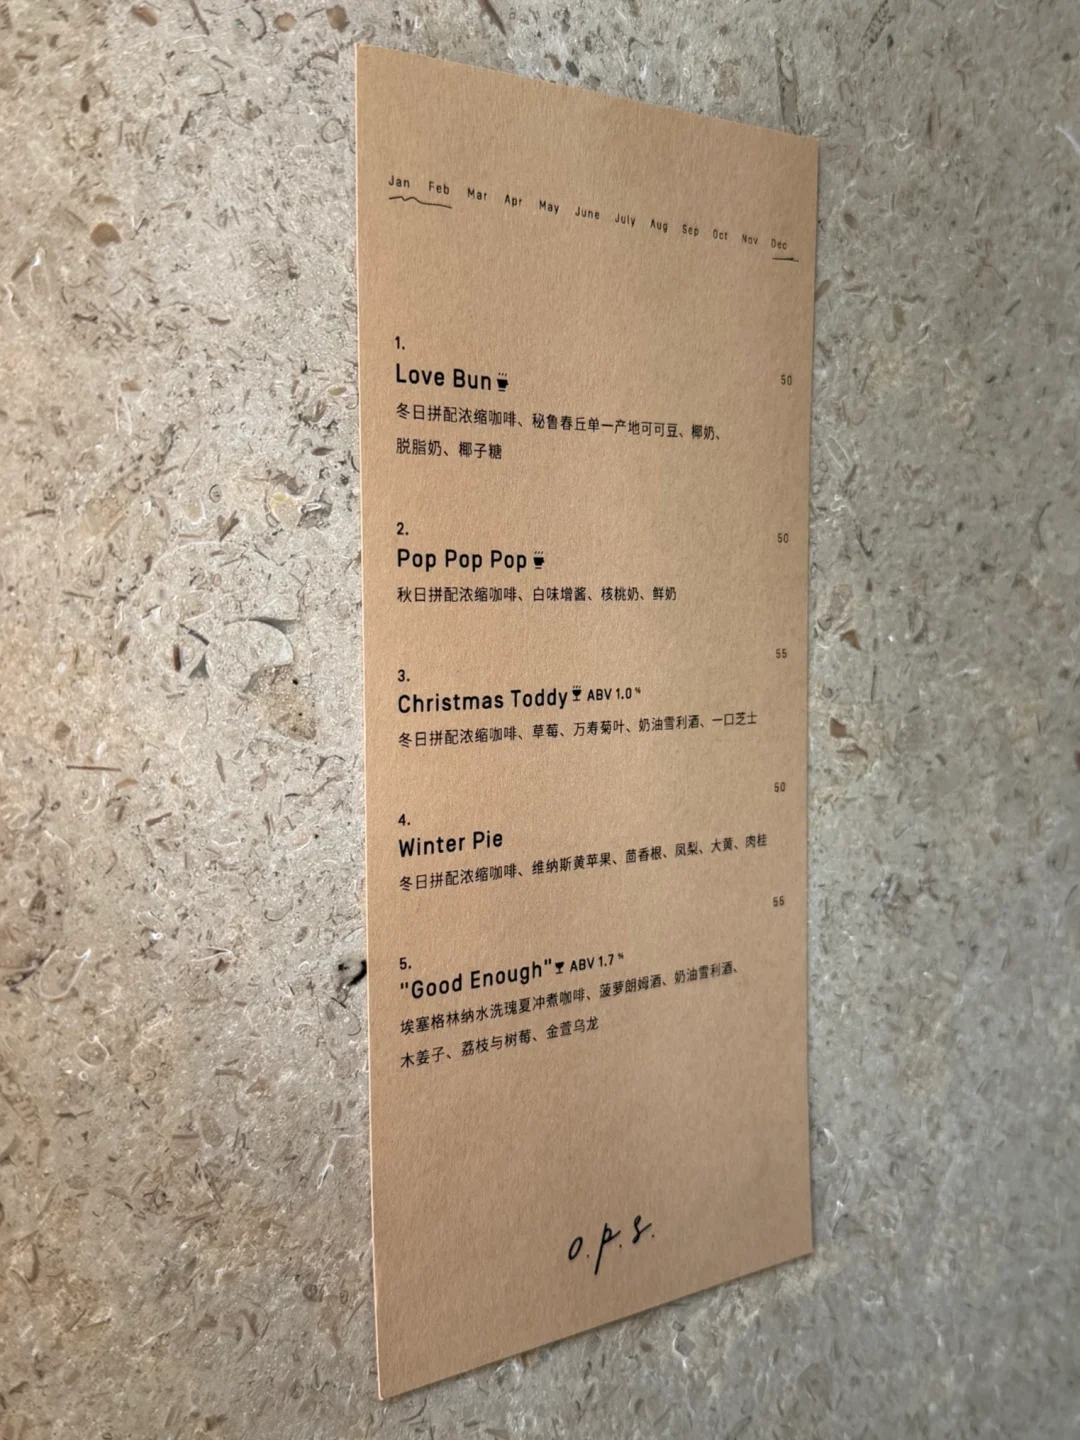 Jan Feb Mar Apr May June July Aug Sep Oct Nov Dec
1.
Love Bun 50
冬日拼配浓缩咖啡、秘鲁春丘单一产地可可豆、椰奶、
脱脂奶、椰子糖
2.
Pop Pop Pop 50
秋日拼配浓缩咖啡、白味增酱、核桃奶、鲜奶
3.
Christmas Toddy ABV 1.0% 55
冬日拼配浓缩咖啡、草莓、万寿菊叶、奶油雪利酒、一口芝士
4.
Winter Pie 50
冬日拼配浓缩咖啡、维纳斯黄苹果、茴香根、凤梨、大黄、肉桂
5.
"Good Enough" ABV 1.7% 55
埃塞格林纳水洗瑰夏冲煮咖啡、菠萝朗姆酒、奶油雪利酒、
木姜子、荔枝与树莓、金萱乌龙
o.p.s.